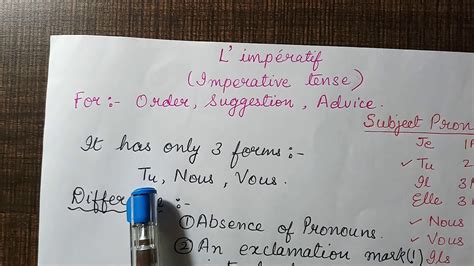 L'impératif
(Imperative tense)
For:- Order, Suggestion, Advice.
It has only 3 forms:-
Tu, Nous, Vous.
:-
① Absence of Pronouns.
② An exclamation mark(!)
Subject Pron
Je 1
✓ Tu 2
Il 3
Elle 3
✓ Nous
✓ Vous
Ils